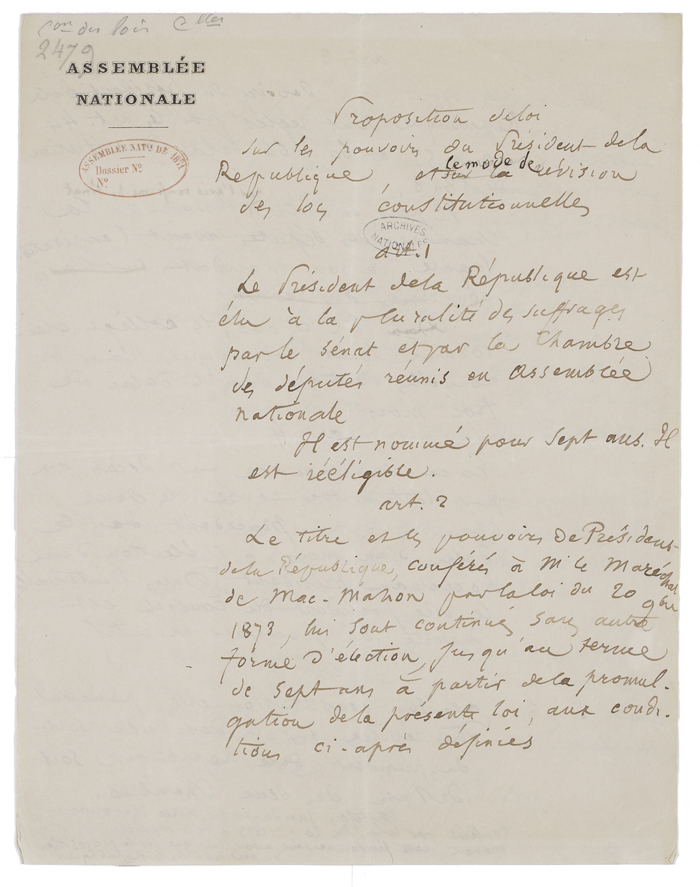 Con des Lois Celles
2479
ASSEMBLÉE
NATIONALE
ASSEMBLÉE NATle DE 1871
Dossier No
No
Proposition de loi
sur les pouvoirs du Président de la
République et sur la le mode de révision
des lois constitutionnelles
ARCHIVES
NATIONALES
art. 1
Le Président de la République est
élu à la pluralité des suffrages
par le Sénat et par la Chambre
des députés réunis en Assemblée
nationale
Il est nommé pour sept ans. Il
est rééligible.
art. 2
Le titre et les pouvoirs de Président
de la République, conférés à M le Maréchal
de Mac-Mahon par la loi du 20 9bre
1873, lui sont continués sans autre
forme d'élection, jusqu'au terme
de sept ans à partir de la promul-
gation de la présente loi, aux condi-
tions ci-après définies